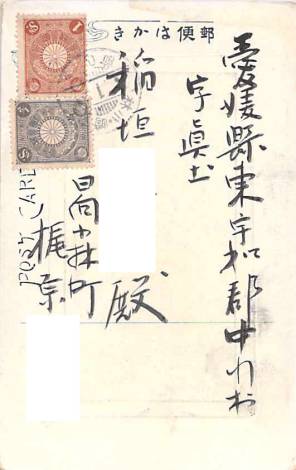 郵便はかき
愛媛縣東宇和郡中川村
字眞土
稲垣 殿
日向小林町
梶原
POST CARD